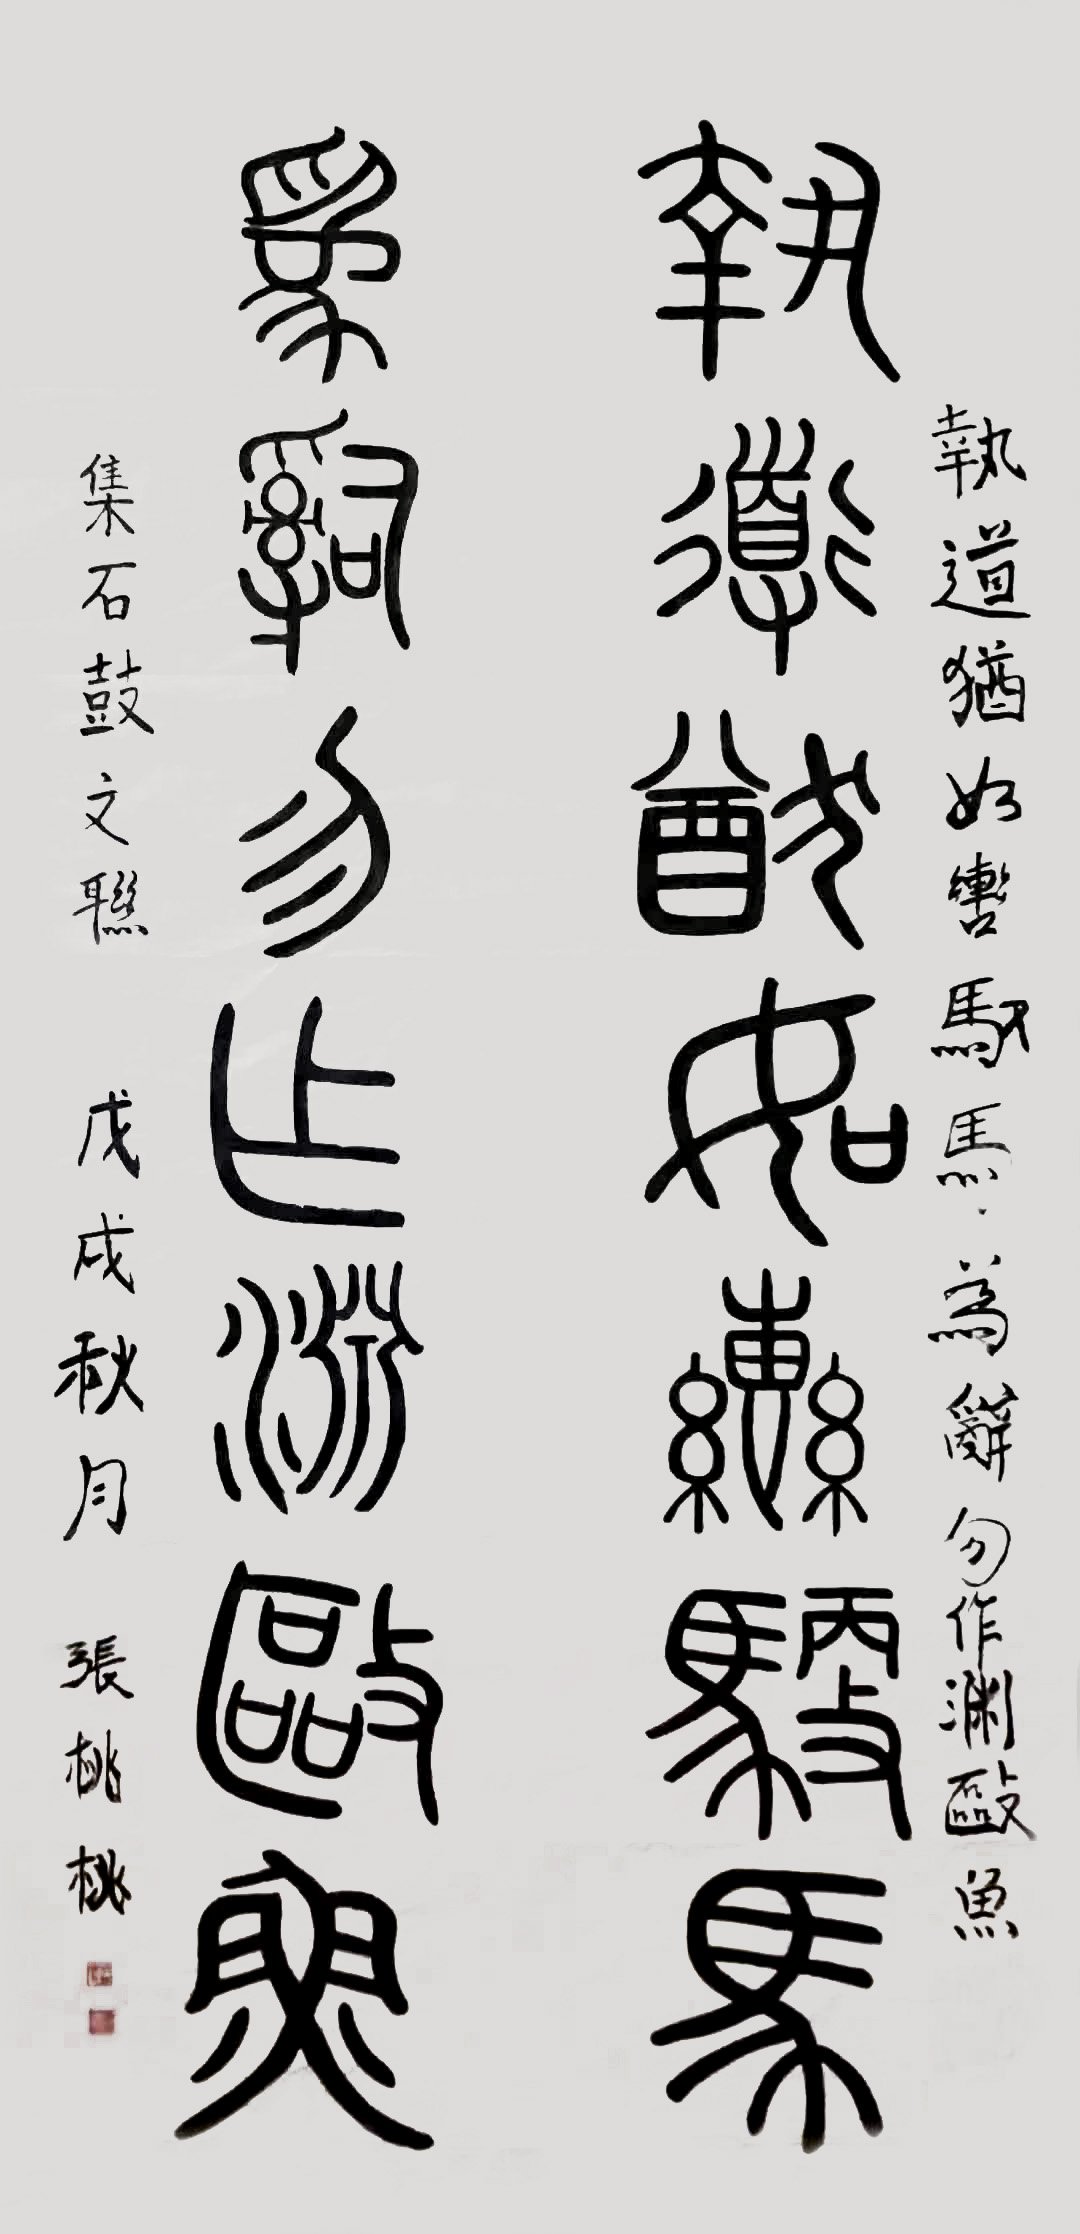 執道猶如轡馭馬為辭勿作淵敺魚
執道猷如轡馭馬
為辭勿作淵敺魚
集石鼓文聯 戊戌秋月 張桃桃